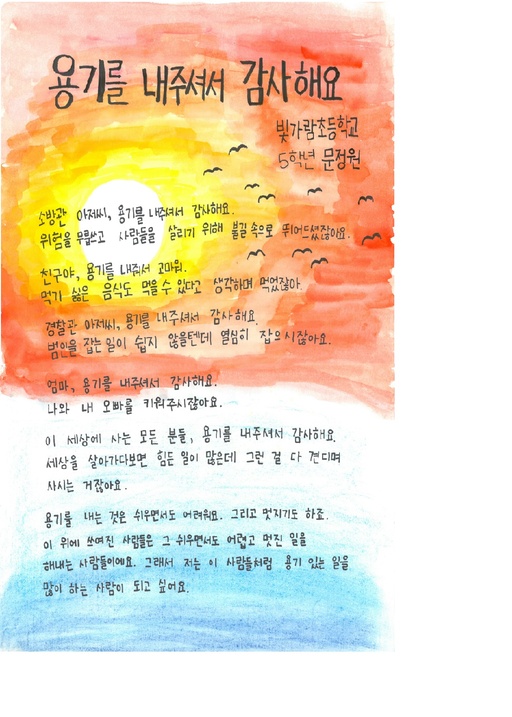 용기를 내주셔서 감사해요
빛가람초등학교
5학년 문정원
소방관 아저씨, 용기를 내주셔서 감사해요.
위험을 무릅쓰고 사람들을 살리기 위해 불길 속으로 뛰어드셨잖아요.
친구야, 용기를 내줘서 고마워.
먹기 싫은 음식도 먹을 수 있다고 생각하며 먹었잖아.
경찰관 아저씨, 용기를 내주셔서 감사해요.
범인을 잡는 일이 쉽지 않을텐데 열심히 잡으시잖아요.
엄마, 용기를 내주셔서 감사해요.
나와 내 오빠를 키워주시잖아요.
이 세상에 사는 모든 분들, 용기를 내주셔서 감사해요.
세상을 살아가다보면 힘든 일이 많은데 그런 걸 다 견디며
사시는 거잖아요.
용기를 내는 것은 쉬우면서도 어려워요. 그리고 멋지기도 하죠.
이 위에 쓰여진 사람들은 그 쉬우면서도 어렵고 멋진 일을
해내는 사람들이에요. 그래서 저는 이 사람들처럼 용기 있는 일을
많이 하는 사람이 되고 싶어요.